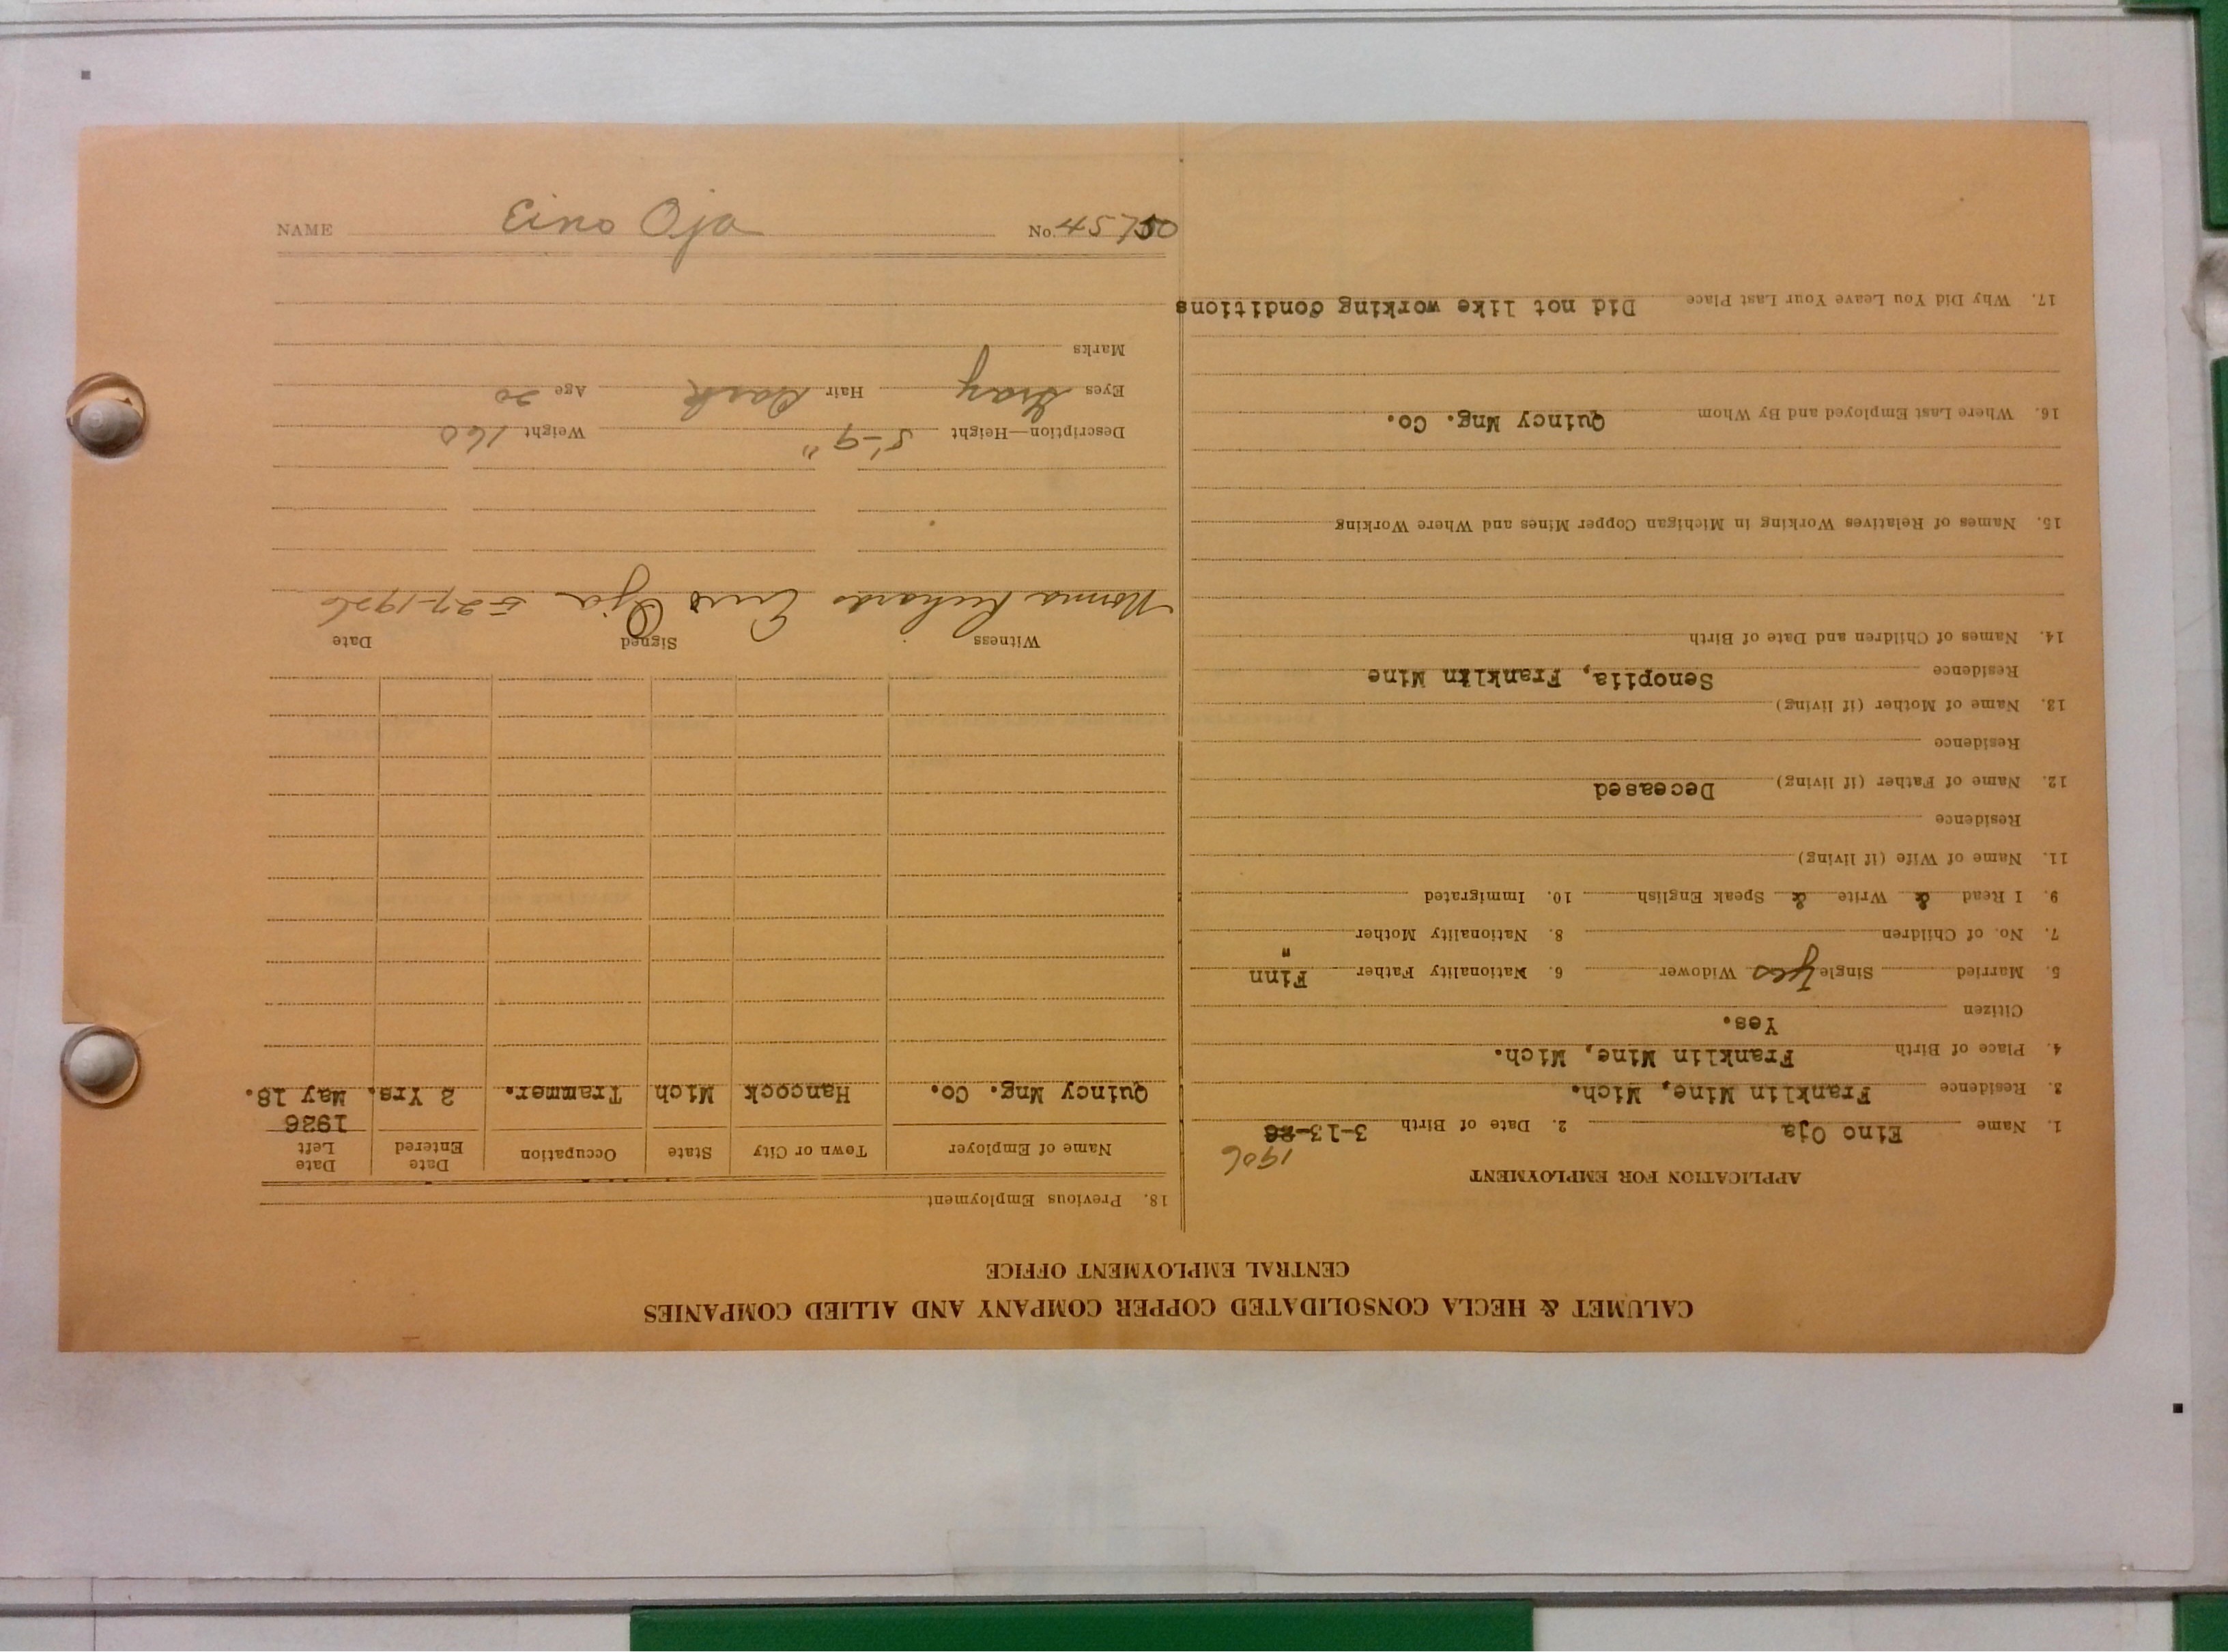 CALUMET & HECLA CONSOLIDATED COPPER COMPANY AND ALLIED COMPANIES
CENTRAL EMPLOYMENT OFFICE
APPLICATION FOR EMPLOYMENT
1906
1. Name Eino Oja 2. Date of Birth 3-13-26
3. Residence Franklin Mine, Mich.
4. Place of Birth Franklin Mine, Mich.
Citizen Yes.
5. Married Single Yes Widower 6. Nationality Father Finn
7. No. of Children 8. Nationality Mother "
9. I Read & Write & Speak English 10. Immigrated
11. Name of Wife (if living)
Residence
12. Name of Father (if living) Deceased
Residence
13. Name of Mother (if living)
Residence Senopiia, Franklin Mine
14. Names of Children and Date of Birth
15. Names of Relatives Working in Michigan Copper Mines and Where Working
16. Where Last Employed and By Whom Quincy Mng. Co.
17. Why Did You Leave Your Last Place Did not like working conditions
18. Previous Employment
Name of Employer Town or City State Occupation Date Entered Date Left
1926
Quincy Mng. Co. Hancock Mich Trammer. 2 Yrs. May 18.
Witness Signed Date
Norma Richards Eino Oja 5-27-1926
Description—Height 5'-9" Weight 160
Eyes Gray Hair Dark Age 20
Marks
NAME Eino Oja No. 45750